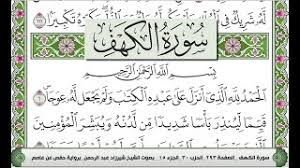 لَّهُۥ شَرِيكٌ فِي ٱلْمُلْكِ وَلَمْ يَكُن لَّهُۥ وَلِيٌّ مِّنَ ٱلذُّلِّ وَكَبِّرْهُ تَكْبِيرًۢا ١١١
سُورَةُ الكَهْفِ
بِسْمِ ٱللَّهِ ٱلرَّحْمَٰنِ ٱلرَّحِيمِ
ٱلْحَمْدُ لِلَّهِ ٱلَّذِيٓ أَنزَلَ عَلَىٰ عَبْدِهِ ٱلْكِتَٰبَ وَلَمْ يَجْعَل لَّهُۥ عِوَجَاۜ ١
قَيِّمًا لِّيُنذِرَ بَأْسًا شَدِيدًا مِّن لَّدُنْهُ وَيُبَشِّرَ ٱلْمُؤْمِنِينَ
سورة الكهف . الصفحة ٢٩٣ . الحزب ٣٠ . الجزء ١٥ . بصوت الشيخ شيرزاد عبد الرحمن . برواية حفص عن عاصم